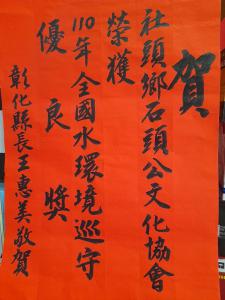 賀
社頭鄉石頭公文化協會
榮獲
110年全國水環境巡守
優良獎
彰化縣長王惠美敬賀